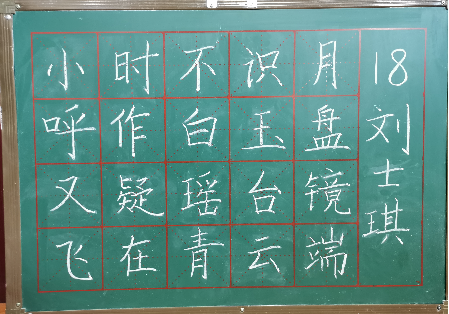 小时不识月
呼作白玉盘
又疑瑶台镜
飞在青云端
18刘士琪